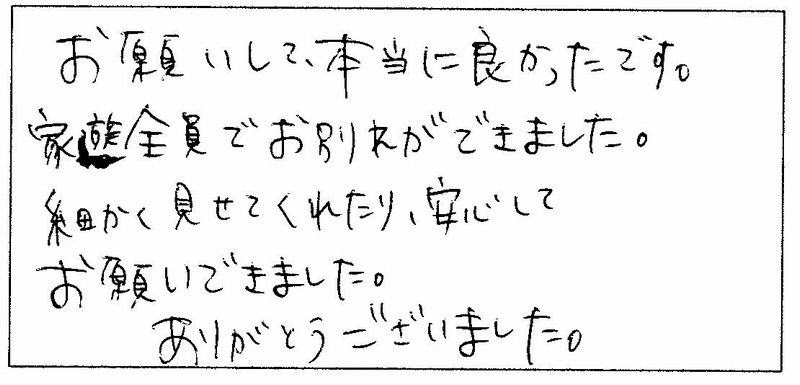 お願いして、本当に良かったです。
家族全員でお別れができました。
細かく見せてくれたり、安心して
お願いできました。
ありがとうございました。